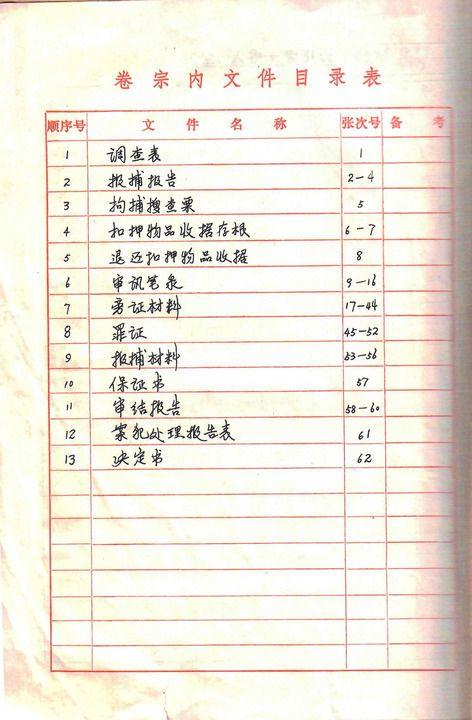 卷宗内文件目录表
顺序号 文件名称 张次号 备考
1 调查表 1
2 报捕报告 2-4
3 拘捕搜查票 5
4 扣押物品收据存根 6-7
5 退还扣押物品收据 8
6 审讯笔录 9-16
7 旁证材料 17-44
8 罪证 45-52
9 报捕材料 53-56
10 保证书 57
11 审结报告 58-60
12 案犯处理报告表 61
13 决定书 62